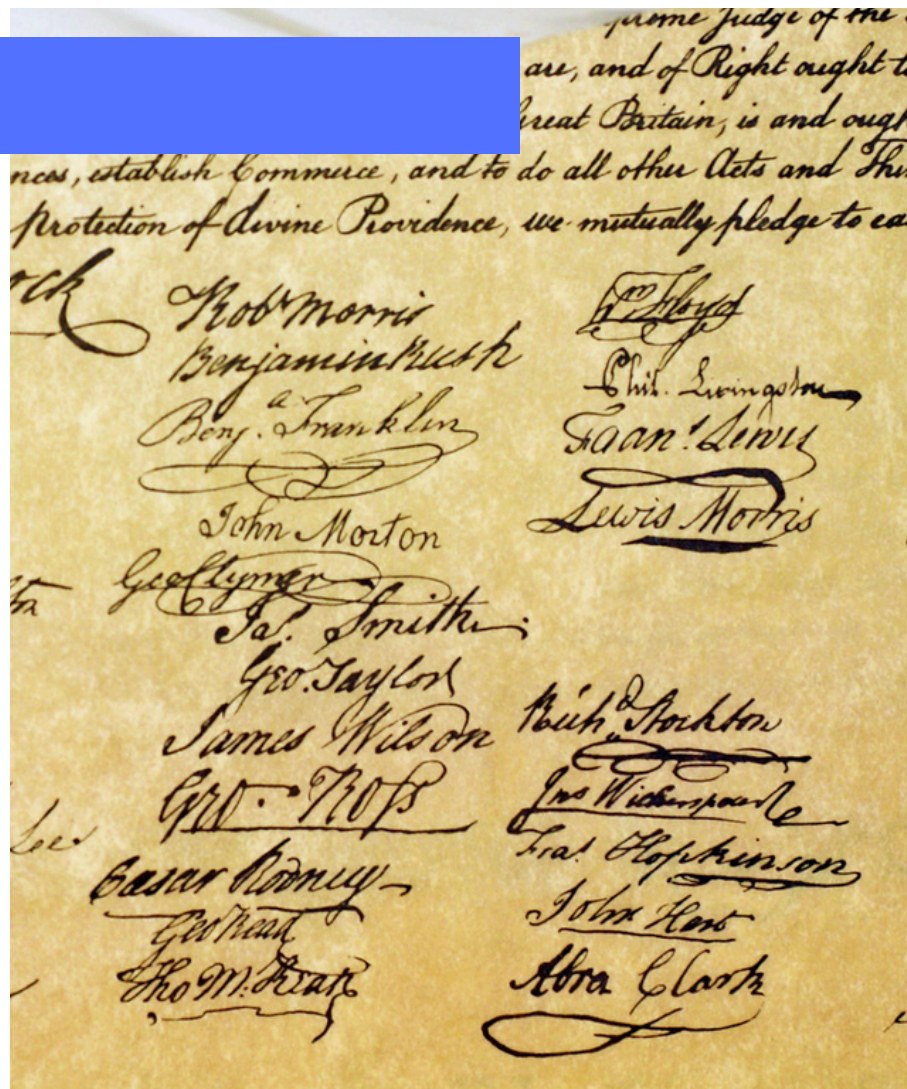 preme Judge of the
are, and of Right ought to
Great Britain, is and ough
nces, establish Commerce, and to do all other Acts and Thin
protection of divine Providence, we mutually pledge to ea
ock
Robt Morris
Benjamin Rush
Benja. Franklin
John Morton
Geo Clymer
Jas. Smith
Geo. Taylor
James Wilson
Geo. Ross
Caesar Rodney
Geo Read
Tho M:Kean
Lee
Wm Floyd
Phil. Livingston
Frans. Lewis
Lewis Morris
Richd. Stockton
Jno Witherspoon
Fras. Hopkinson
John Hart
Abra Clark